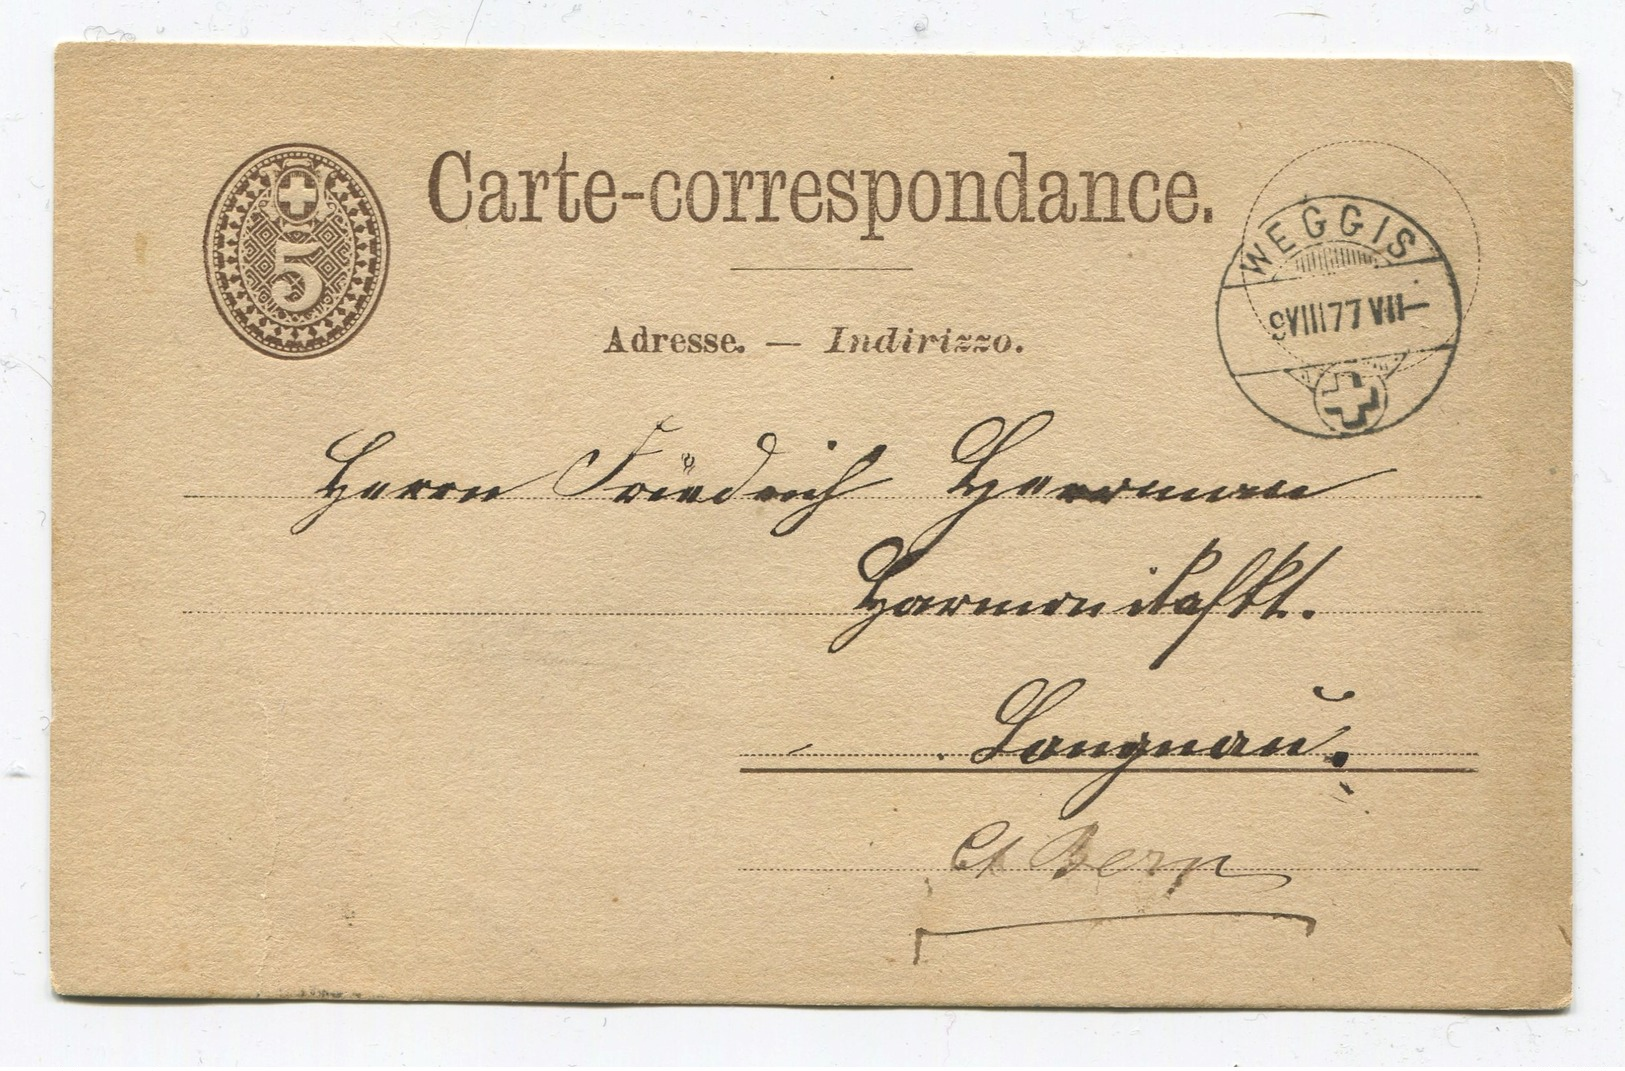 5
Carte-correspondance.
WEGGIS
9 VIII 77 VII—
Adresse. — Indirizzo.
Herrn Friedrich Herrman
Langnau.
Ct Bern